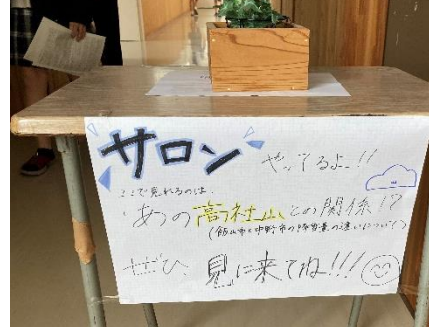 サロン やってるよ!!
ここで見れるのは、
あの高社山との関係!?
(飯山市と中野市の降雪量の違いについて)
ぜひ 見に来てね!!!